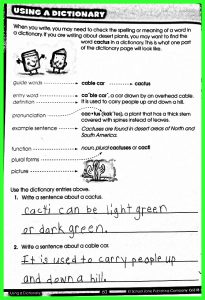 USING A DICTIONARY
When you write, you may need to check the spelling or meaning of a word in
a dictionary. If you are writing about desert plants, you may want to find the
word cactus in a dictionary. This is what one part
of the dictionary page will look like.
guide words cable car cactus
entry word ca′ble car′, a car drawn by an overhead cable.
definition It is used to carry people up and down a hill.
pronunciation cac•tus (kak′təs), a plant that has a thick stem
covered with spines instead of leaves.
example sentence Cactuses are found in desert areas of North and
South America.
function noun, plural cactuses or cacti
plural forms
picture
Use the dictionary entries above.
1. Write a sentence about a cactus.
cacti can be light green
or dark green.
2. Write a sentence about a cable car.
It is used to carry people up
and down a hill.
Using a Dictionary